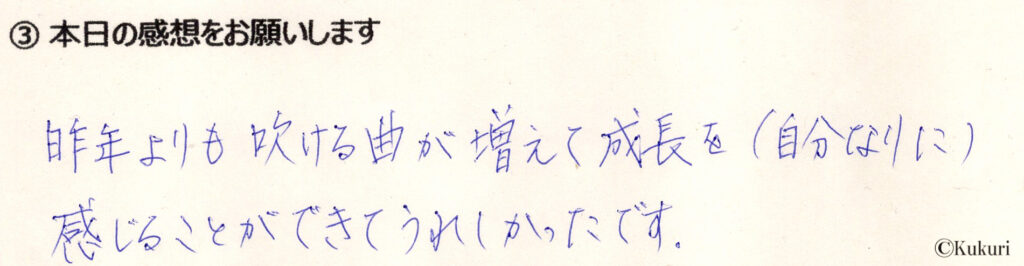 ③ 本日の感想をお願いします
昨年よりも吹ける曲が増えて成長を(自分なりに)
感じることができてうれしかったです.
©Kukuri